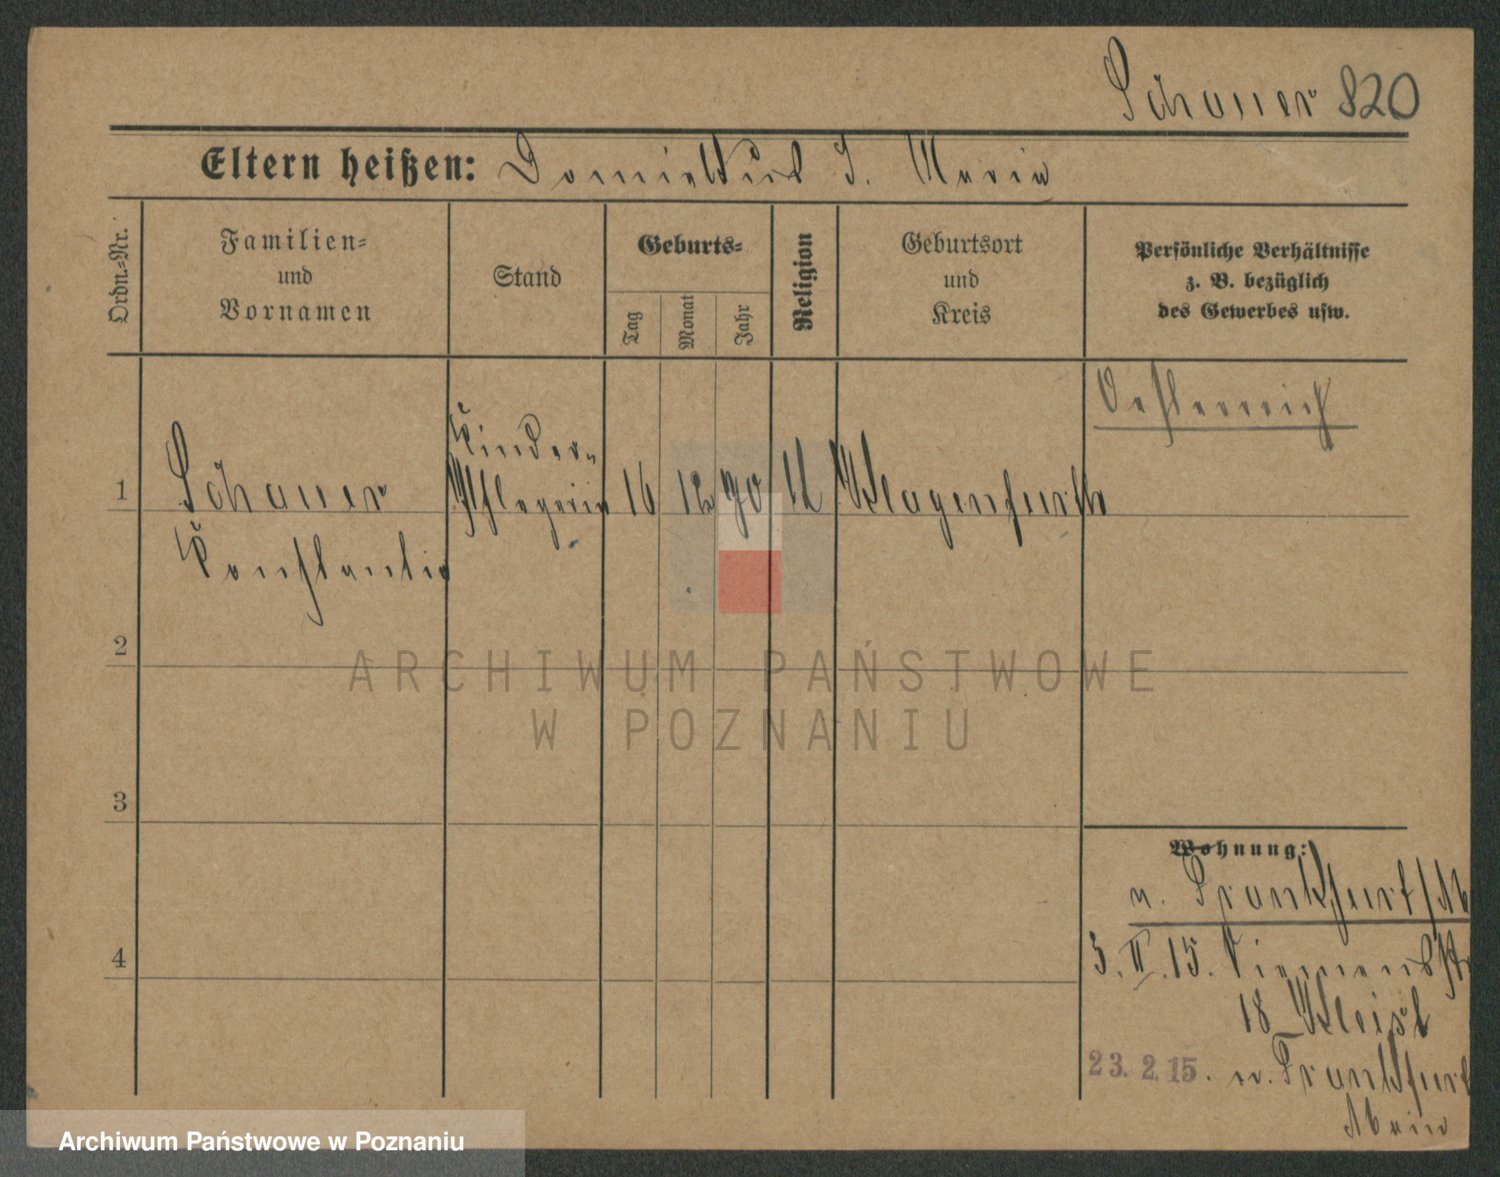 Schauer 820
Eltern heißen: Dominikus u. Maria
Ordn.-Nr.
Familien-
und
Vornamen
Stand
Geburts-
Tag
Monat
Jahr
Religion
Geburtsort
und
Kreis
Persönliche Verhältnisse
z. B. bezüglich
des Gewerbes usw.
Oesterreich
Kinder-
1 Schauer Pflegerin 16 12 90 Klagenfurth
Konstantia
2
3
4
Wohnung:
n. Frankfurt/M
3. II. 15. Siemensstr
18
23.2.15. n. Frankfurt
Main
ARCHIWUM PAŃSTWOWE
W POZNANIU
Archiwum Państwowe w Poznaniu